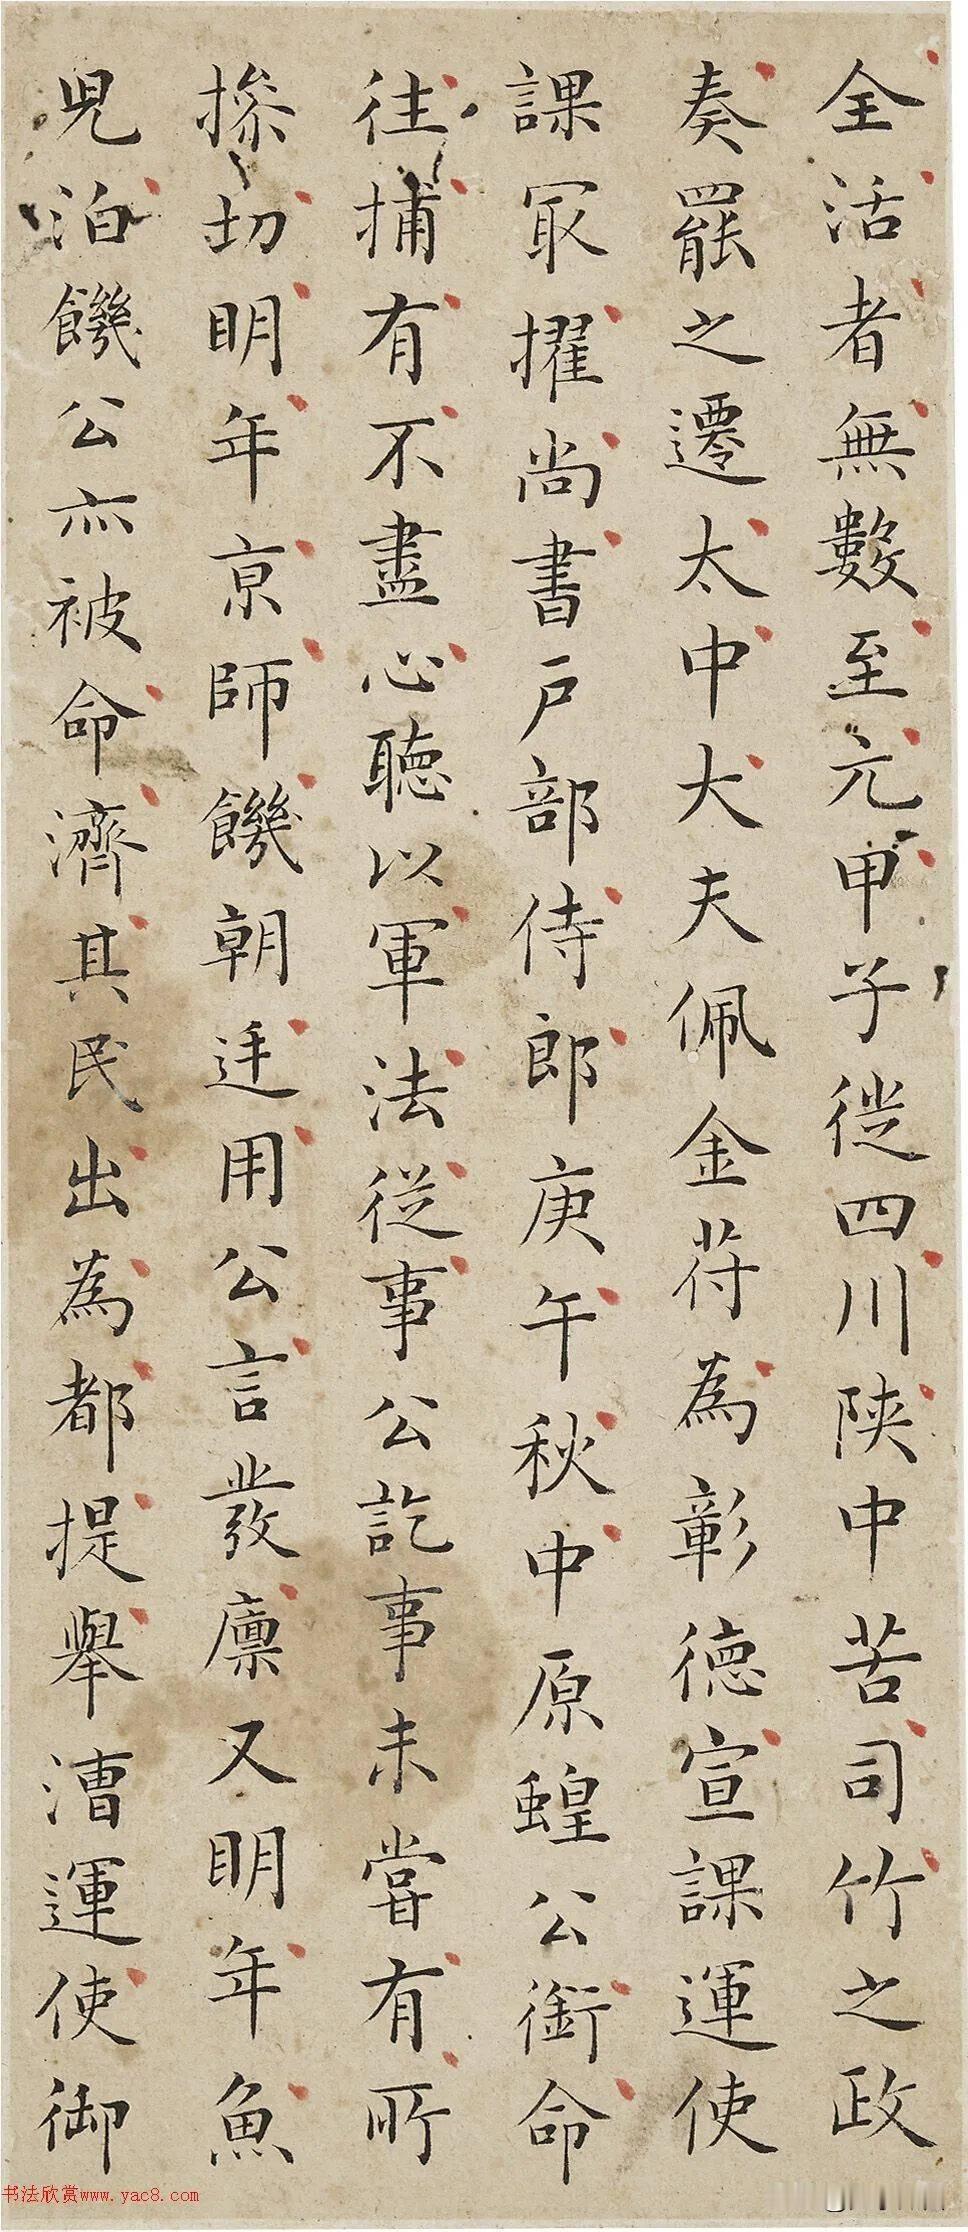 全活者無數至元甲子從四川陝中苦司竹之政
奏罷之遷太中大夫佩金苻為彰德宣課運使
課冣擢尚書戶部侍郎庚午秋中原蝗公銜命
往捕有不盡心聽以軍法從事公訖事未嘗有所
摻切明年京師饑朝廷用公言發廪又明年魚
児泊饑公亦被命濟其民出為都提舉漕運使御
书法欣赏www.yac8.com